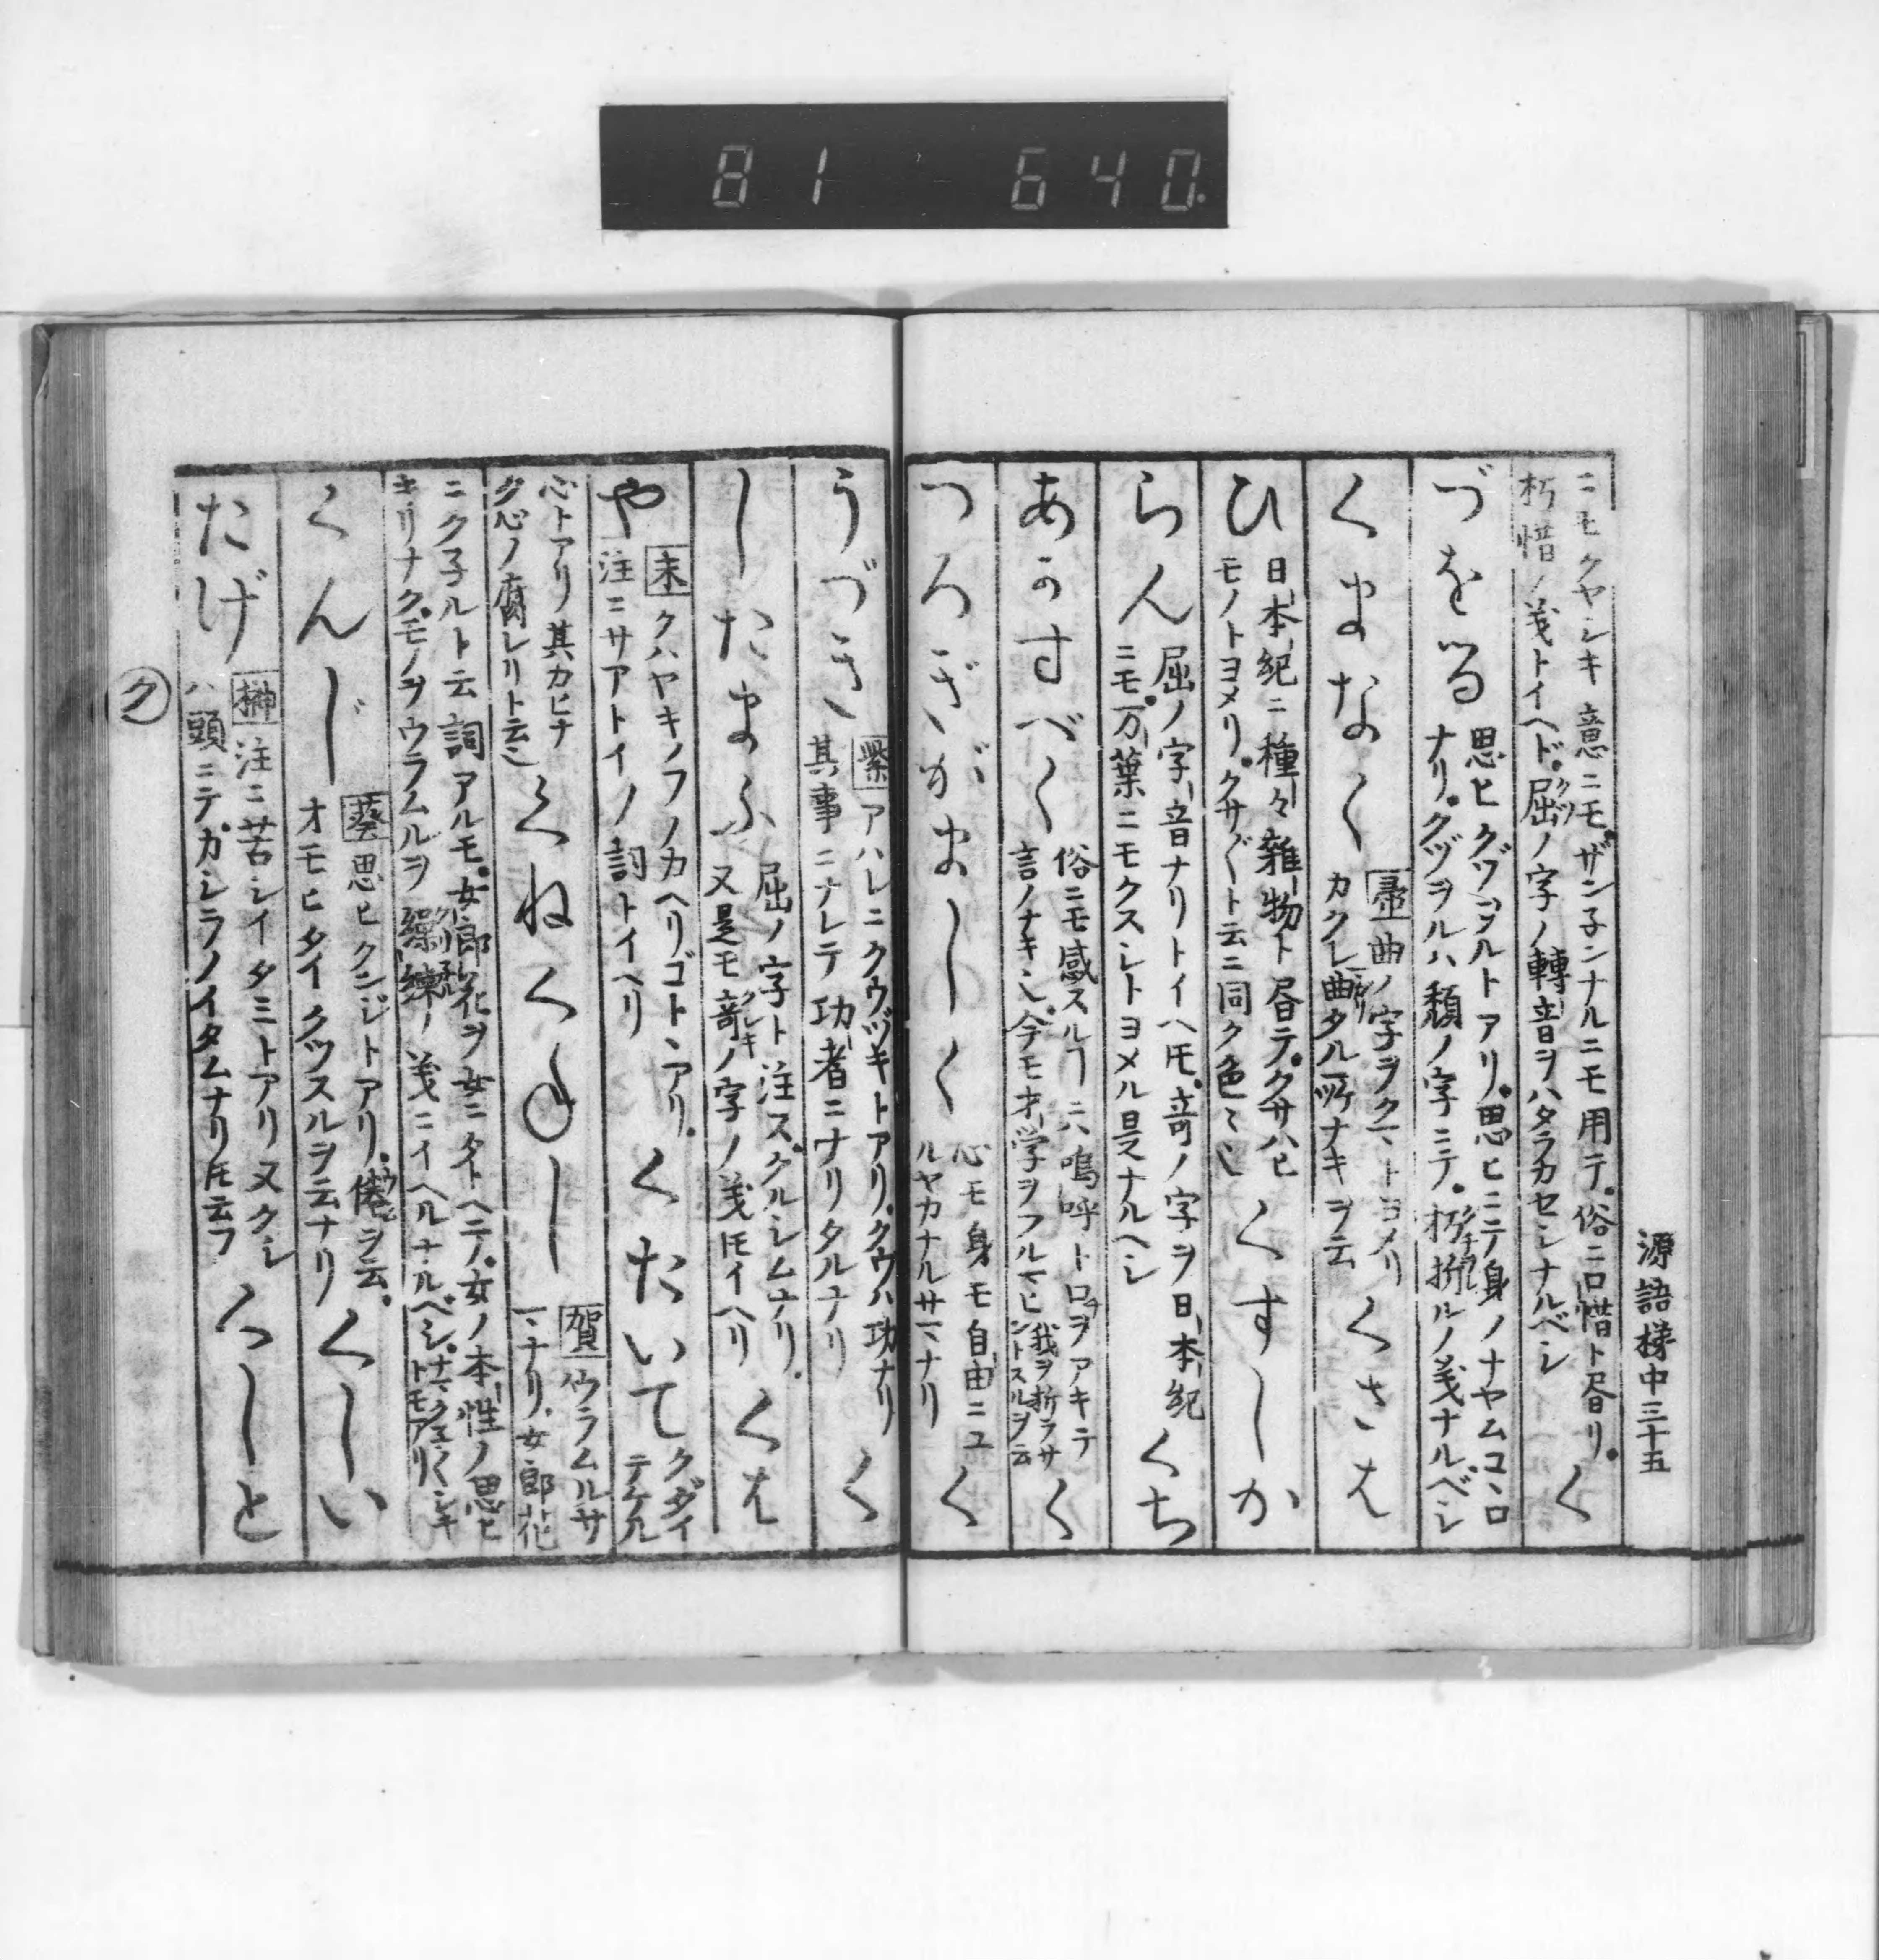 81 640.
源語梯中三十五
ニモクヤシキ意ニモ。ザン子ンナルニモ用テ。俗ニ口惜ト昏リ。
朽惜ノ義トイヘド。屈ノ字ノ轉音ヲハタラカセシナルベシ
く
づをるゝ
思ヒクヅヲルトアリ。思ヒニテ身ノナヤムコヽロ
ナリ。クヅヲルハ頽ノ字ニテ。朽折ルノ義ナルベシ
くまなく
帚 曲ノ字ヲクマトヨメリ
カクレ曲タル所ナキヲ云
くさは
ひ
日本紀ニ種々雜物ト昏テ。クサハヒ
モノトヨメリ。クサ〲ト云ニ同ク色々
くすしか
らん
屈ノ字音ナリトイヘ𪜈。奇ノ字ヲ日本紀
ニモ。万葉ニモクスシトヨメル是ナルヘシ
くち
あかすべく
俗ニモ感スルヿニハ嗚呼ト口ヲアキテ
言ノナキ也。今モ才学ヲフルマヒ
我ヲ折ラサ
ントスルヲ云
く
つろぎがましく
心モ身モ自由ニユ
ルヤカナルサマナリ
く
うづき
紫 アハレニクウヅキトアリ。クウハ功ナリ
其事ニナレテ功者ニナリタルナリ
く
したまふ
屈ノ字ト注ス。クルシムナリ。
又是モ奇ノ字ノ義𪜈イヘリ
くは
や
末 クハヤキノフノカヘリゴトヽアリ。
注ニサアトイノ詞トイヘリ
くたいて
クダイ
テケル
心トアリ其カヒナ
ク心ノ腐レリト云
くねくねし
賀 ウラムルサ
マナリ。女郎花
ニクネルト云詞アルモ。女郎花ヲ女ニタトヘテノ。女ノ本性ノ思ヒ
キリナク。モノヲウラムルヲ繰練ノ義ニイヘルナルベシ。
くんじ
葵 思ヒクンジトアリ。倦ヲ云。
オモヒタイクツスルヲ云ナリ
くしい
たげ
榊 注ニ苦シイタミトアリ又クシ
ハ頭ニテ。カシラノイタムナリ𪜈云フ
くしと
ク